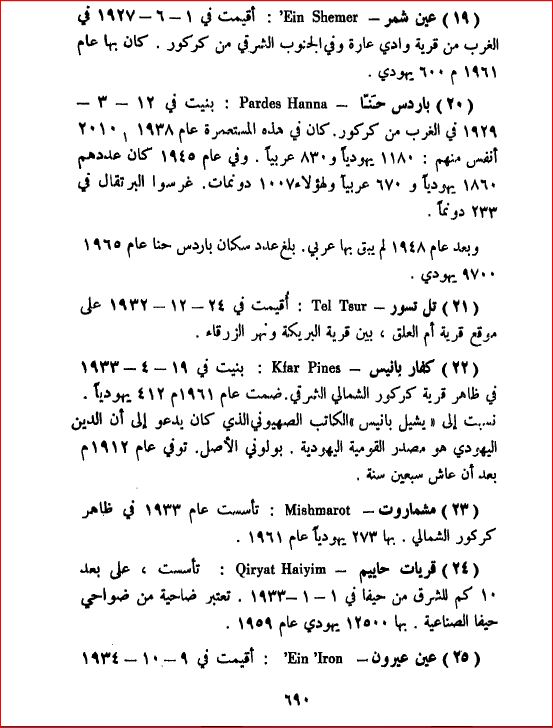 (١٩) عين شمر – Ein Shemer' : أقيمت في ١ – ٦ – ١٩٢٧ في
الغرب من قرية وادي عارة وفي الجنوب الشرقي من كركور . كان بها عام
١٩٦١ م ٦٠٠ يهودي .
(٢٠) باردس حنّنا – Pardes Hanna : بنيت في ١٢ – ٣ –
١٩٢٩ في الغرب من كركور. كان في هذه المستعمرة عام ١٩٣٨ م ٢٠١٠
أنفس منهم : ١١٨٠ يهودياً و ٨٣٠ عربياً . وفي عام ١٩٤٥ كان عددهم
١٨٦٠ يهودياً و ٦٧٠ عربياً ولهؤلاء ١٠٠٧ دونمات. غرسوا البرتقال في
٢٣٣ دونماً .
وبعد عام ١٩٤٨ لم يبق بها عربي . بلغ عدد سكان باردس حنا عام ١٩٦٥
٩٧٠٠ يهودي .
(٢١) تل تسور – Tel Tsur : أُقيمت في ٢٤ – ١٢ – ١٩٣٢ على
موقع قرية أم العلق ، بين قرية البريكة ونهر الزرقاء .
(٢٢) كفار بانيس – Kfar Pines : بنيت في ١٩ – ٤ – ١٩٣٣
في ظاهر قرية كركور الشمالي الشرقي. ضمت عام ١٩٦١م ٤١٢ يهودياً .
نسبت إلى « يشيل بانيس » الكاتب الصهيوني الذي كان يدعو إلى أن الدين
اليهودي هو مصدر القومية اليهودية . بولوني الأصل. توفي عام ١٩١٢م
بعد أن عاش سبعين سنة .
(٢٣) مشماروت – Mishmarot : تأسست عام ١٩٣٣ في ظاهر
كركور الشمالي . بها ٢٧٣ يهودياً عام ١٩٦١ .
(٢٤) قريات حاييم – Qiryat Haiyim : تأسست ، على بعد
١٠ كم للشرق من حيفا في ١ – ١ – ١٩٣٣ . تعتبر ضاحية من ضواحي
حيفا الصناعية . بها ١٢٥٠٠ يهودي عام ١٩٥٩ .
(٢٥) عين عيرون – Ein 'Iron' : أقيمت في ٩ – ١٠ – ١٩٣٤
٦٩٠